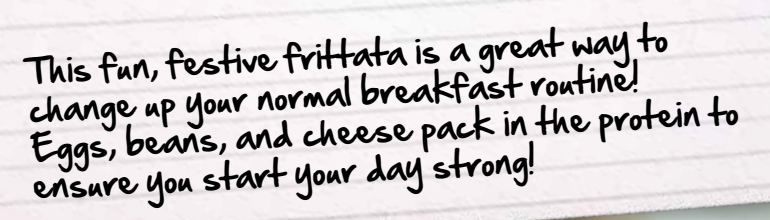 This fun, festive frittata is a great way to
change up your normal breakfast routine!
Eggs, beans, and cheese pack in the protein to
ensure you start your day strong!